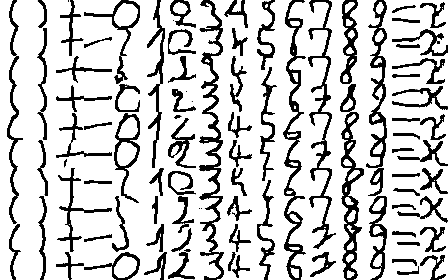 ( ) + - 0 1 2 3 4 5 6 7 8 9 = x
( ) + - 1 2 3 4 5 6 7 8 9 = x
( ) + - 1 2 3 4 5 6 7 8 9 = x
( ) + - 0 1 2 3 4 5 6 7 8 9 = x
( ) + - 0 1 2 3 4 5 6 7 8 9 = x
( ) + - 0 1 2 3 4 5 6 7 8 9 = x
( ) + - 1 2 3 4 5 6 7 8 9 = x
( ) + - 1 2 3 4 5 6 7 8 9 = x
( ) + - 1 2 3 4 5 6 7 8 9 = x
( ) + - 0 1 2 3 4 5 6 7 8 9 = x